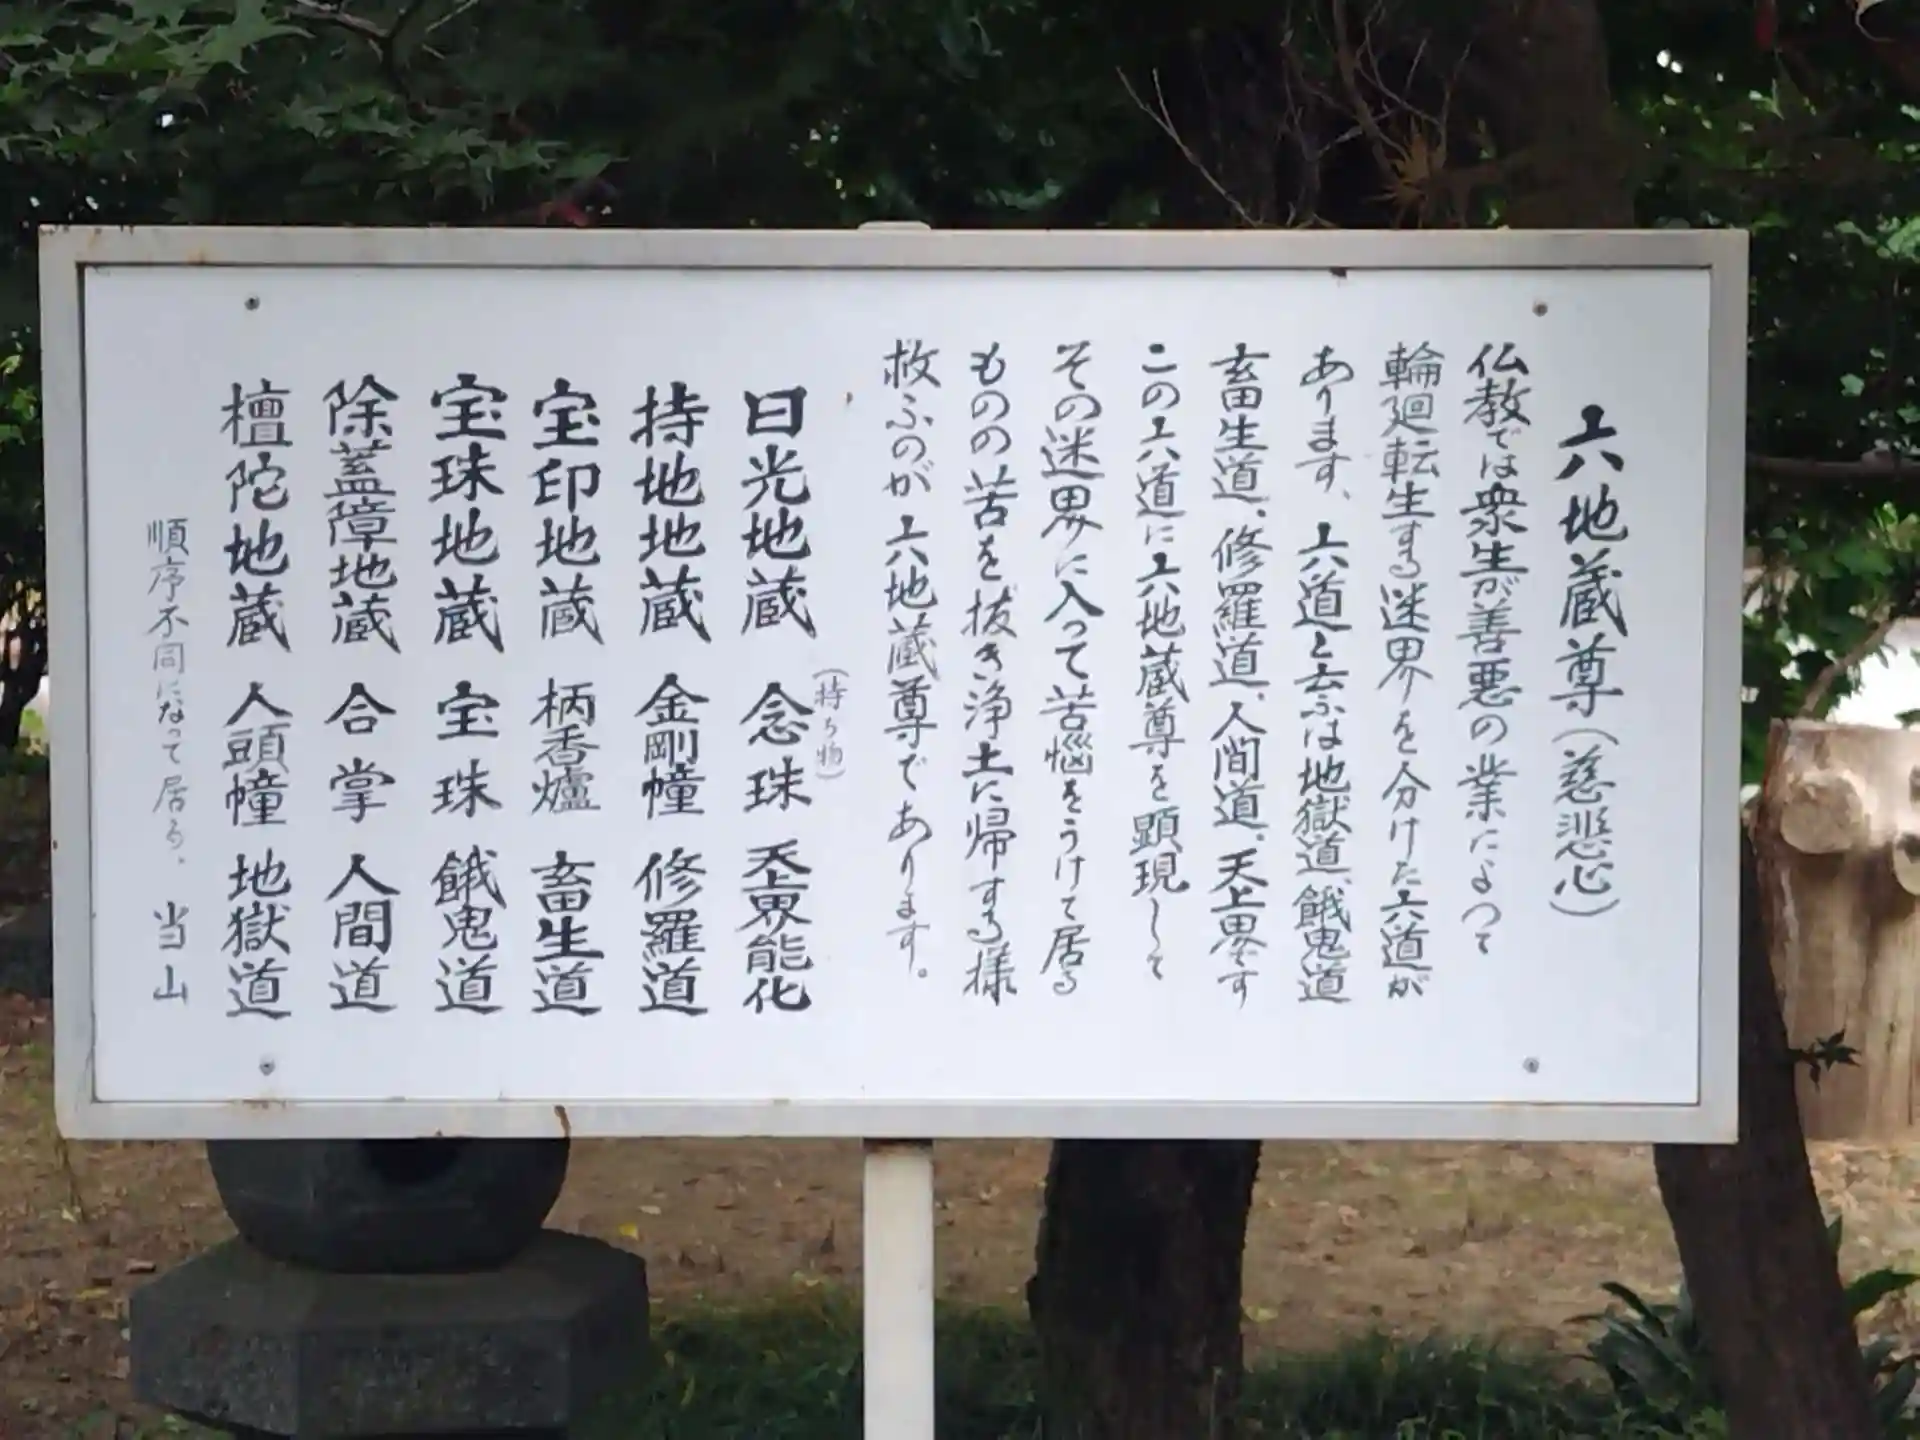 六地蔵尊(慈悲心)
仏教では衆生が善悪の業によつて
輪廻転生する迷界を分けた六道が
あります、六道と云ふは地獄道、餓鬼道
畜生道、修羅道、人間道、天上界です
この六道に六地蔵尊を顕現して
その迷界に入って苦悩をうけて居る
ものの苦を抜き浄土に帰する様
救ふのが六地蔵尊であります。
(持ち物)
日光地蔵 念珠 天上界能化
持地地蔵 金剛幢 修羅道
宝印地蔵 柄香爐 畜生道
宝珠地蔵 宝珠 餓鬼道
除蓋障地蔵 合掌 人間道
檀陀地蔵 人頭幢 地獄道
順序不同になって居る。 当山